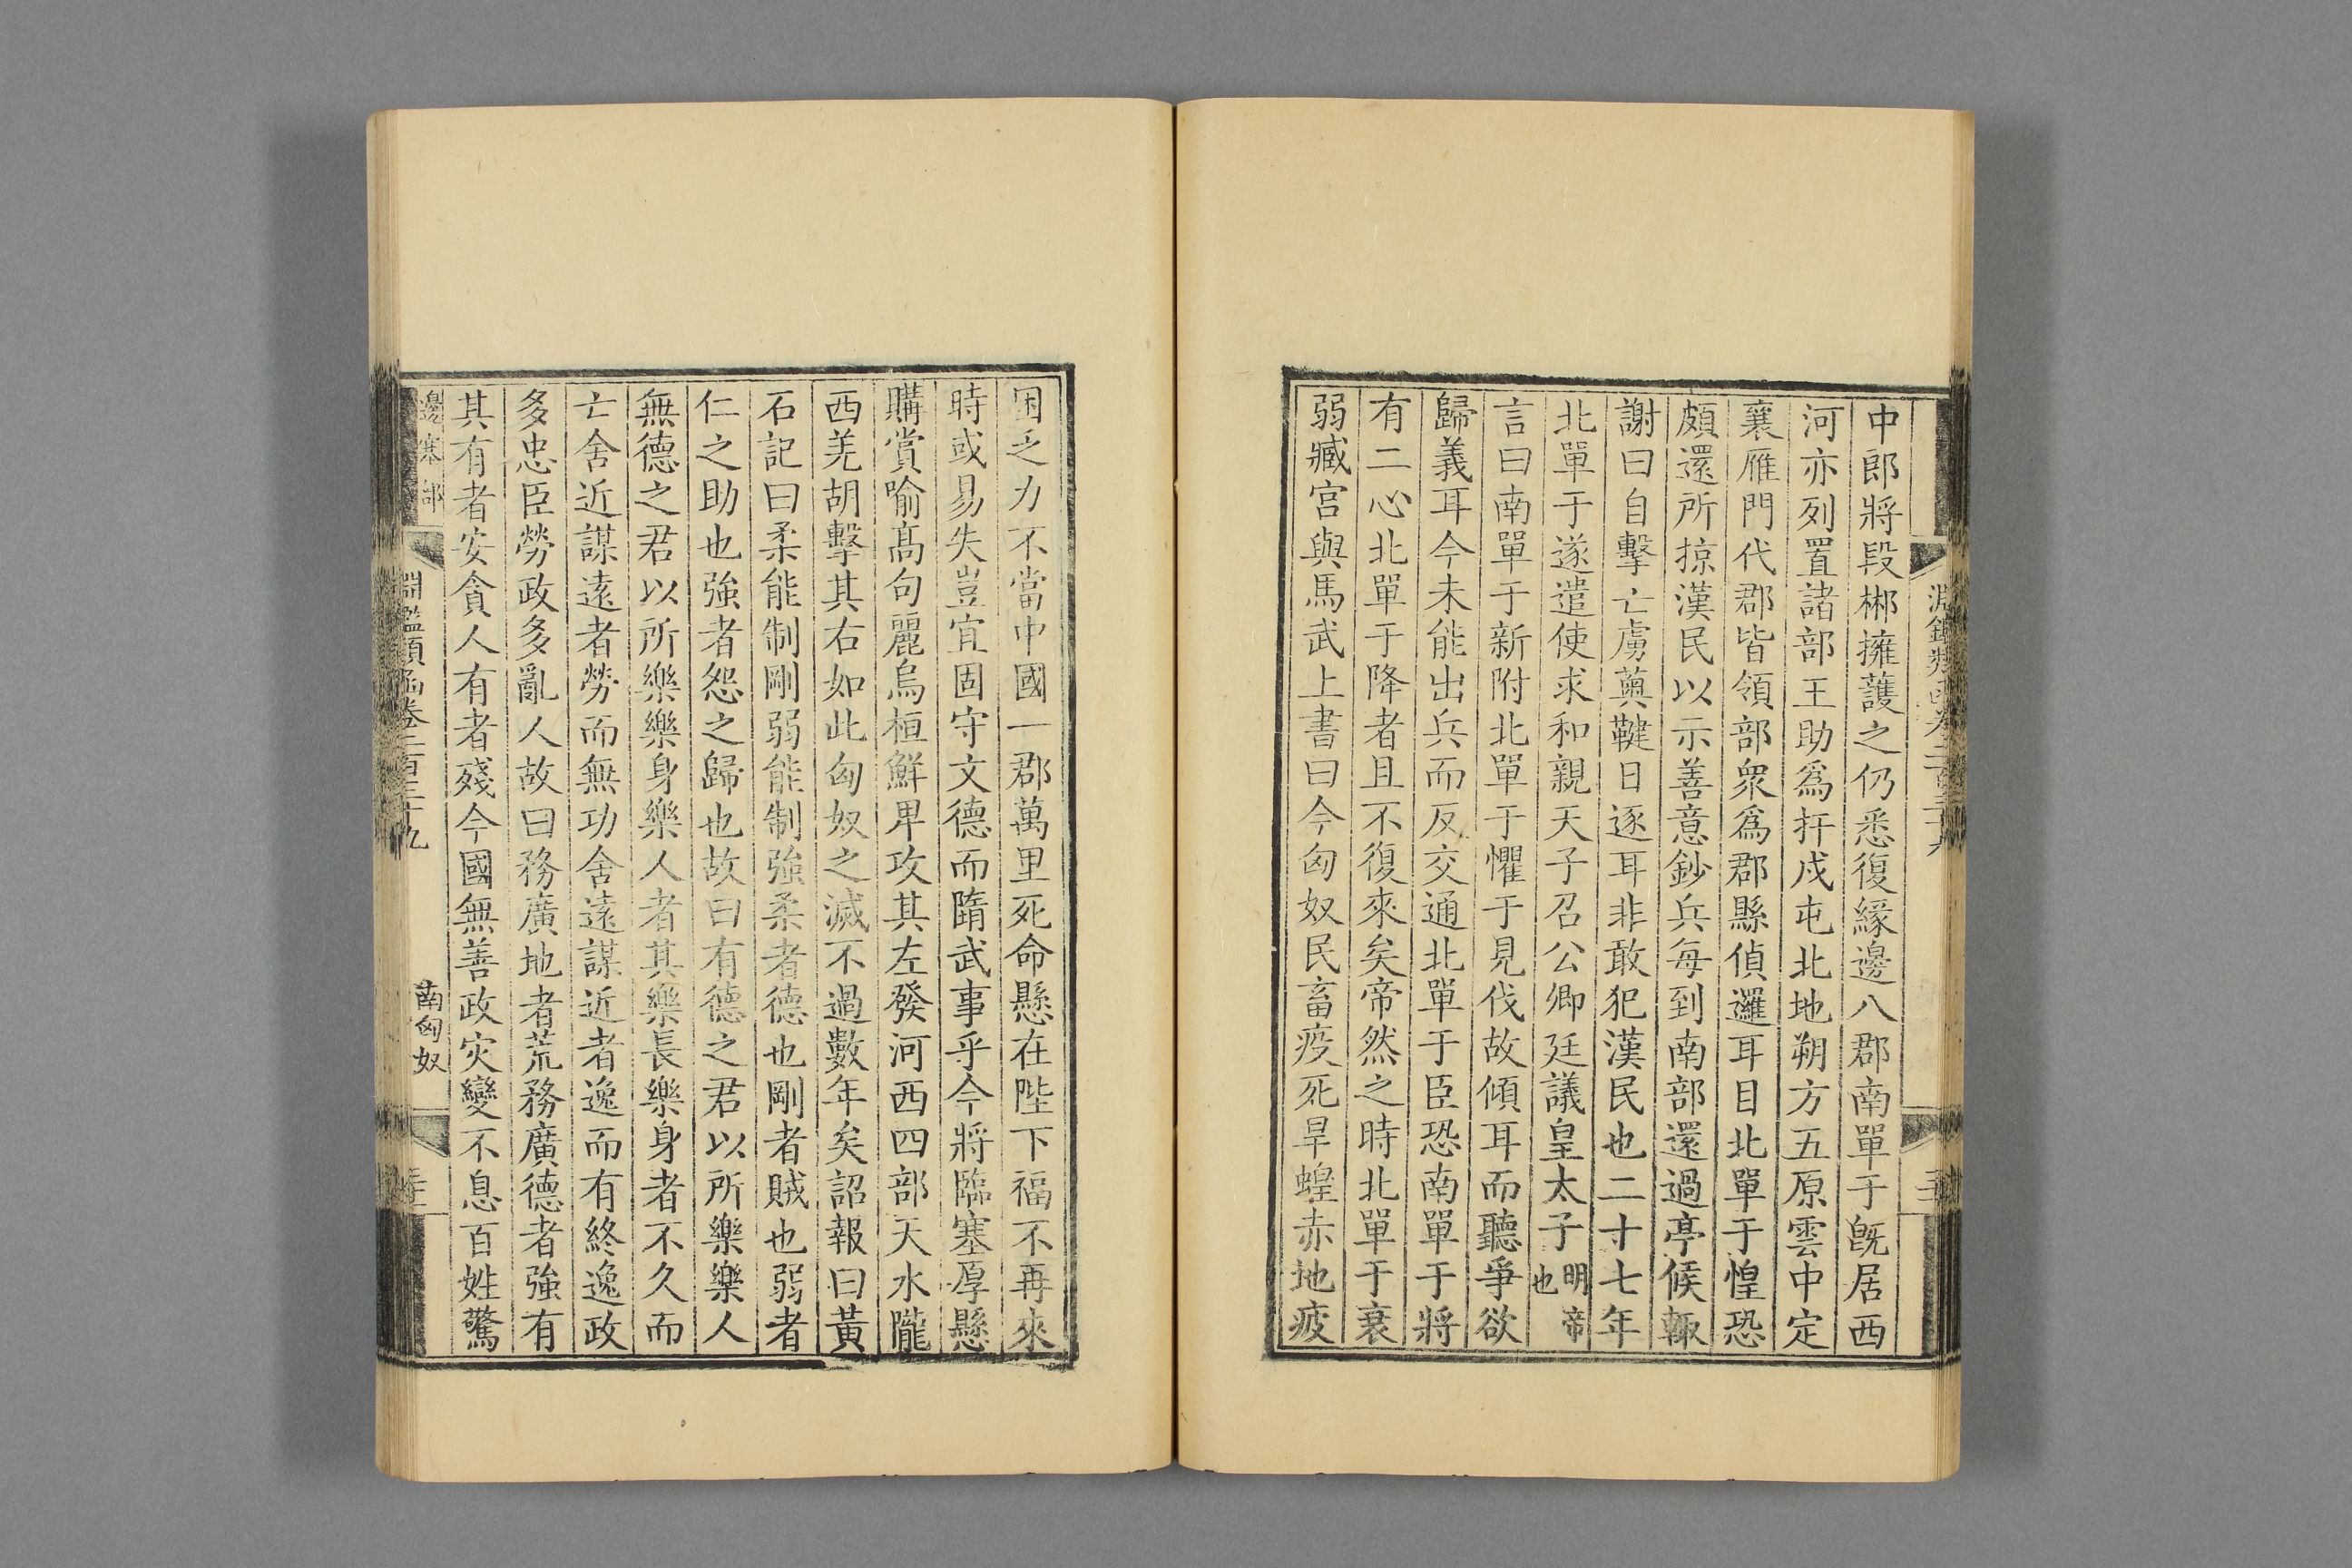 中郎將段郴擁護之仍悉復緣邊八郡南單于旣居西
河亦列置諸部王助爲扞戍屯北地朔方五原雲中定
襄雁門代郡皆領部衆爲郡縣偵邏耳目北單于惶恐
頗還所掠漢民以示善意鈔兵每到南部還過亭候輒
謝曰自擊亡虜薁鞬日逐耳非敢犯漢民也二十七年
北單于遂遣使求和親天子召公卿廷議皇太子明帝也
言曰南單于新附北單于懼于見伐故傾耳而聽爭欲
歸義耳今未能出兵而反交通北單于臣恐南單于將
有二心北單于降者且不復來矣帝然之時北單于衰
弱臧宮與馬武上書曰今匈奴民畜疫死旱蝗赤地疲
困乏力不當中國一郡萬里死命懸在陛下福不再來
時或易失豈宜固守文德而隋武事乎今將臨塞厚懸
購賞喻髙句麗烏桓鮮卑攻其左發河西四部天水隴
西羌胡擊其右如此匈奴之滅不過數年矣詔報曰黃
石記曰柔能制剛弱能制強柔者德也剛者賊也弱者
仁之助也強者怨之歸也故曰有德之君以所樂樂人
無德之君以所樂樂身樂人者其樂長樂身者不久而
亡舍近謀遠者勞而無功舍遠謀近者逸而有終逸政
多忠臣勞政多亂人故曰務廣地者荒務廣德者強有
其有者安貪人有者殘今國無善政灾變不息百姓驚
邊塞部
淵鑑類函卷二百三十九
南匈奴